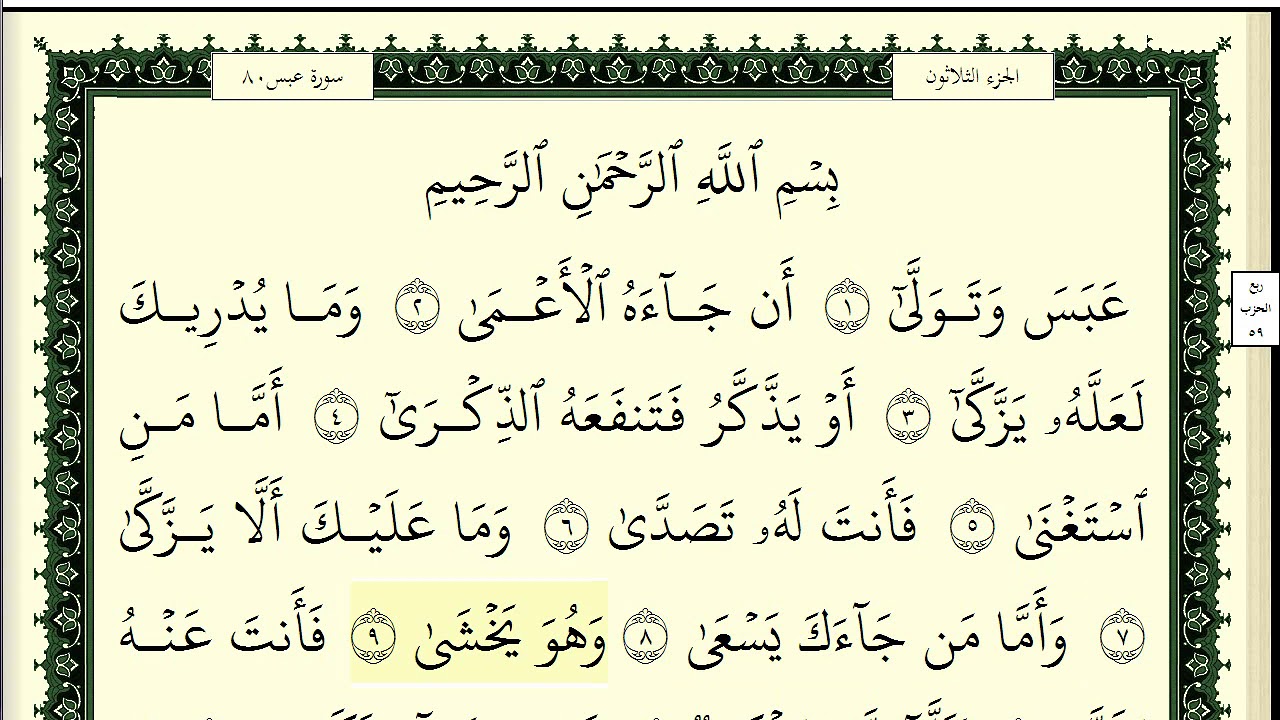 الجزء الثلاثون
سورة عبس ٨٠
بِسۡمِ ٱللَّهِ ٱلرَّحۡمَٰنِ ٱلرَّحِيمِ
عَبَسَ وَتَوَلَّىٰٓ ١ أَن جَآءَهُ ٱلۡأَعۡمَىٰ ٢ وَمَا يُدۡرِيكَ
لَعَلَّهُۥ يَزَّكَّىٰٓ ٣ أَوۡ يَذَّكَّرُ فَتَنفَعَهُ ٱلذِّكۡرَىٰٓ ٤ أَمَّا مَنِ
ٱسۡتَغۡنَىٰ ٥ فَأَنتَ لَهُۥ تَصَدَّىٰ ٦ وَمَا عَلَيۡكَ أَلَّا يَزَّكَّىٰ
٧ وَأَمَّا مَن جَآءَكَ يَسۡعَىٰ ٨ وَهُوَ يَخۡشَىٰ ٩ فَأَنتَ عَنۡهُ
ربع
الحزب
٥٩